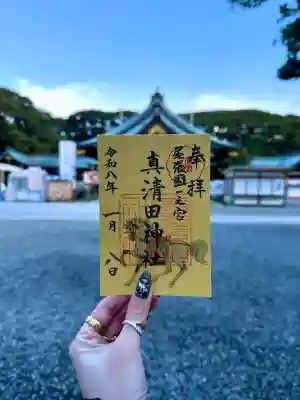 奉拝
尾張國一之宮
真清田神社
令和八年
一月八日